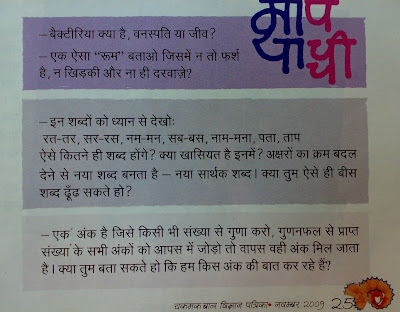 माथा
पच्ची
– बैक्टीरिया क्या है, वनस्पति या जीव?
– एक ऐसा “रूम” बताओ जिसमें न तो फर्श
है, न खिड़की और ना ही दरवाज़े?
– इन शब्दों को ध्यान से देखोः
रत-तर, सर-रस, नम-मन, सब-बस, नाम-मना, पता, ताप
ऐसे कितने ही शब्द होंगे? क्या खासियत है इनमें? अक्षरों का क्रम बदल
देने से नया शब्द बनता है – नया सार्थक शब्द। क्या तुम ऐसे ही बीस
शब्द ढूँढ सकते हो?
– एक अंक है जिसे किसी भी संख्या से गुणा करो, गुणनफल से प्राप्त
संख्या के सभी अंकों को आपस में जोड़ो तो वापस वही अंक मिल जाता
है। क्या तुम बता सकते हो कि हम किस अंक की बात कर रहे हैं?
चकमक बाल विज्ञान पत्रिका • नवम्बर 2009 25